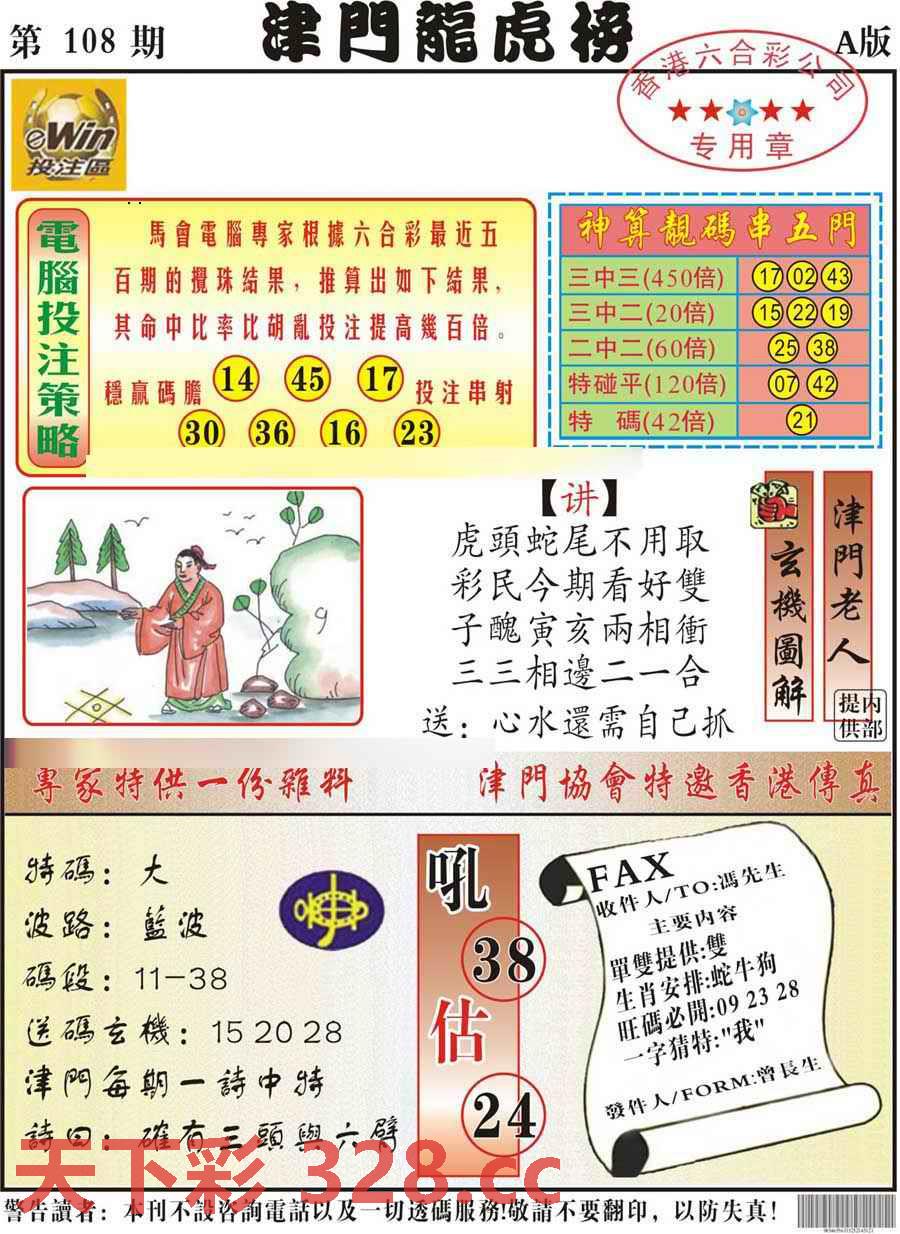 第 108 期
津門龍虎榜
A版
香港六合彩公司
专用章
eWin
投注區
電腦投注策略
馬會電腦專家根據六合彩最近五
百期的攪珠結果，推算出如下結果，
其命中比率比胡亂投注提高幾百倍。
穩贏碼膽 14 45 17 投注串射
30 36 16 23
神算靚碼串五門
三中三(450倍) 17 02 43
三中二(20倍) 15 22 19
二中二(60倍) 25 38
特碰平(120倍) 07 42
特 碼(42倍) 21
【讲】
虎頭蛇尾不用取
彩民今期看好雙
子醜寅亥兩相衝
三三相邊二一合
送：心水還需自己抓
玄機圖解
津門老人
内部
提供
專家特供一份雜料
津門協會特邀香港傳真
特碼：大
波路：藍波
碼段：11-38
送碼玄機：15 20 28
津門每期一詩中特
詩曰：確有三頭與六臂
吼
38
估
24
FAX
收件人/TO:馮先生
主要内容
單雙提供:雙
生肖安排:蛇牛狗
旺碼必開:09 23 28
一字猜特:"我"
發件人/FORM:曾長生
天下彩 328.cc
警告讀者：本刊不設咨詢電話以及一切透碼服務!敬請不要翻印，以防失真！